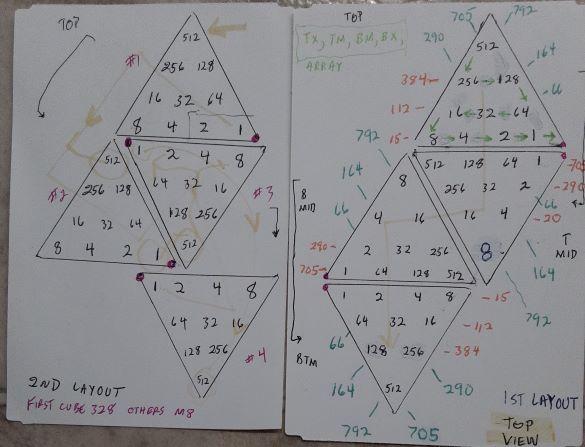 TOP
512
#1
256 128
16 32 64
8 4 2 1
512
1 2 4 8
#2
256 128
64 32 16
#3
16 32 64
128 256
8 4 2 1
512
1 2 4 8
64 32 16
128 256
#4
512
2ND LAYOUT
FIRST CUBE 328 OTHERS M8
TOP
705
792
TX, TM, BM, BX,
ARRAY
290
512
164
384
256 128
66
112
16 32 64
15
8 4 2 1
792
512 128 64 1
705
164
8
256 32 2
290
8 MID
66
4 16
16 4
66
20
290
2 32 256
8
T MID
705
1 64 128 512
164
1 2 4 8
15
792
64 32 16
112
BTM
66
128 256
384
164
512
290
792
705
1ST LAYOUT
TOP
VIEW